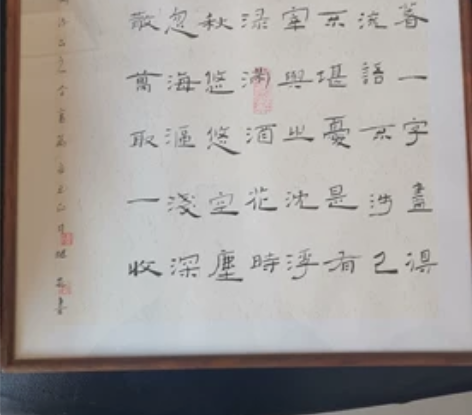 著一字盡得
流語不涉己
不堪憂是有
宰與之沈浮
渌滿酒花時
秋悠悠空塵
忽海漚淺深
散萬取一收